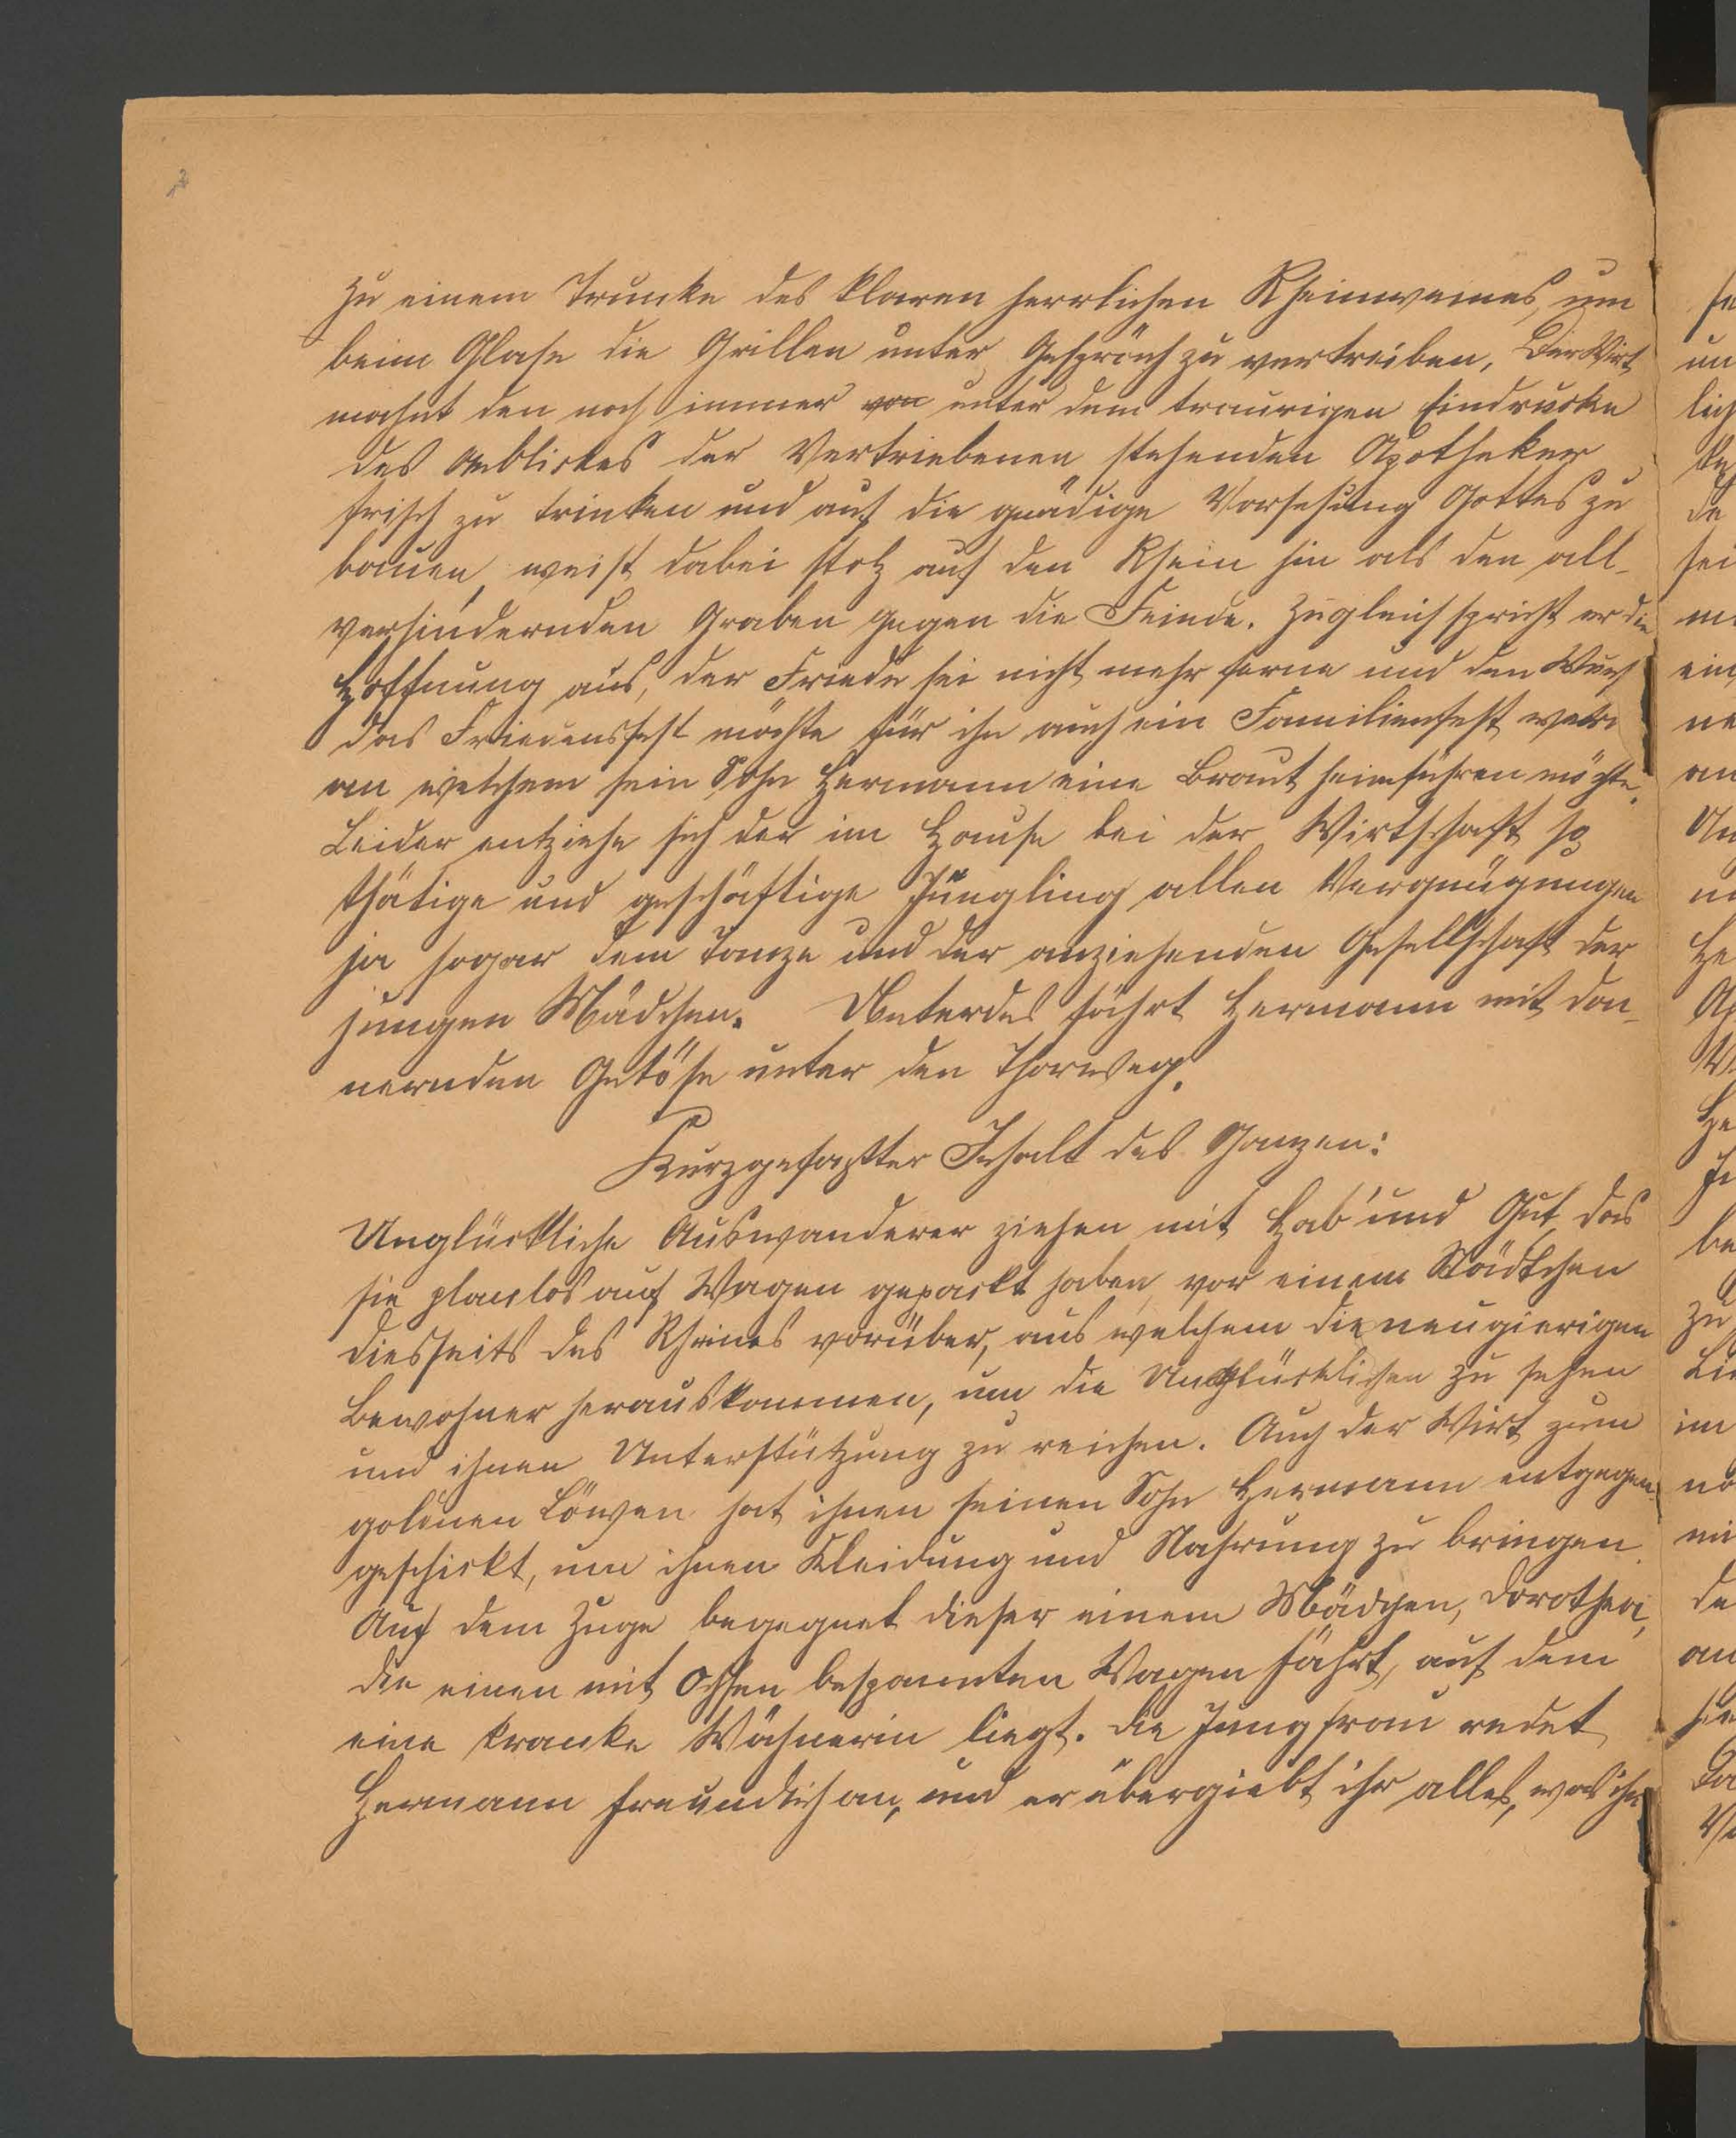 zu einem Trunke des klaren herrlichen Rheinweines, um
beim Glase die Grillen unter Gespräch zu vertreiben. Der Wirt
mahnt den noch immer von unter dem traurigen Eindrucke
des Anblickes der Vertriebenen stehenden Apotheker
frisch zu trinken und auf die gnädige Vorsehung Gottes zu
bauen, weist dabei stolz auf den Rhein hin als den all-
verhindernden Graben gegen die Feinde. Zugleich spricht er die
Hoffnung aus, der Friede sei nicht mehr ferne und den Wunsch
das Friedensfest möchte für ihn auch ein Familienfest
an welchem sein Sohn Hermann eine Braut heimführen möchte.
Leider entziehe sich der im Hause bei der Wirtschaft so
thätige und geschäftige Jüngling allen Vergnügungen
ja sogar dem Tanze und der anziehenden Gesellschaft der
jungen Mädchen. Unterdes fährt Hermann mit don-
nernden Getöse unter den Thorweg.
Kurzgefaßter Inhalt des Ganzen:
Unglückliche Auswanderer ziehen mit Hab' und Gut, das
sie planlos auf Wagen gepackt haben, vor einem Städtchen
diesseits des Rheines vorüber, aus welchem die neugierigen
Bewohner herauskommen, um die Unglücklichen zu sehen
und ihnen Unterstützung zu reichen. Auch der Wirt zum
goldnen Löwen hat ihnen seinen Sohn Hermann entgegen-
geschickt, um ihnen Kleidung und Nahrung zu bringen.
Auf dem Zuge begegnet dieser einem Mädchen, Dorothea,
die einen mit Ochsen bespannten Wagen fährt, auf dem
eine kranke Wöchnerin liegt. Die Jungfrau redet
Hermann freundlich an, und er übergiebt ihr alles, was ihm